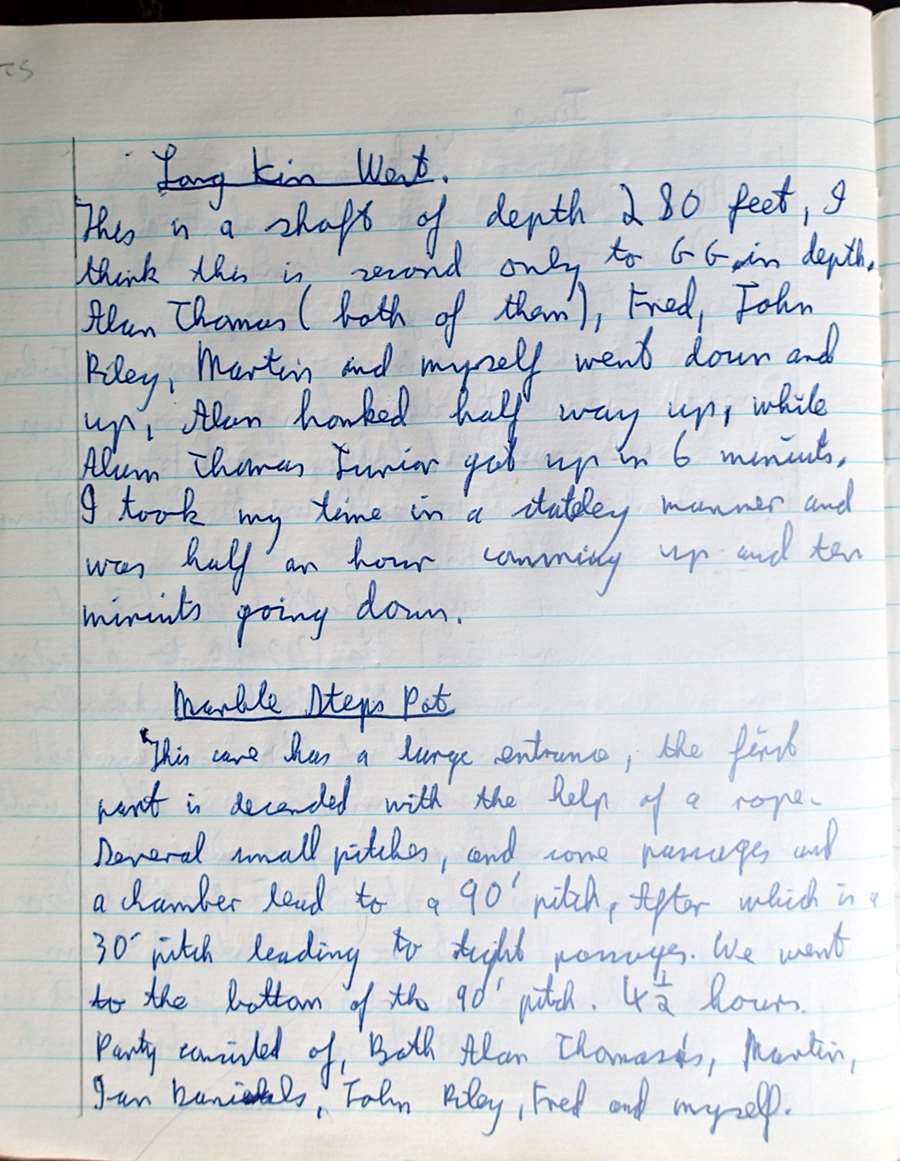 Long Kin West.
This is a shaft of depth 280 feet, I
think this is second only to GG in depth.
Alan Thomas (both of them), Fred, John
Riley, Martin and myself went down and
up, Alan honked half way up, while
Alan Thomas Junior got up in 6 minuits.
I took my time in a stateley manner and
was half an hour comming up and ten
minuits going down.
Marble Steps Pot
This cave has a large entrance, the first
part is decended with the help of a rope.
Several small pitches, and some passages and
a chamber lead to a 90' pitch, After which is a
30' pitch leading to tight passages. We went
to the bottom of the 90' pitch. 4½ hours.
Party consisted of, Both Alan Thomases, Martin,
Ian Daniels, John Riley, Fred and myself.